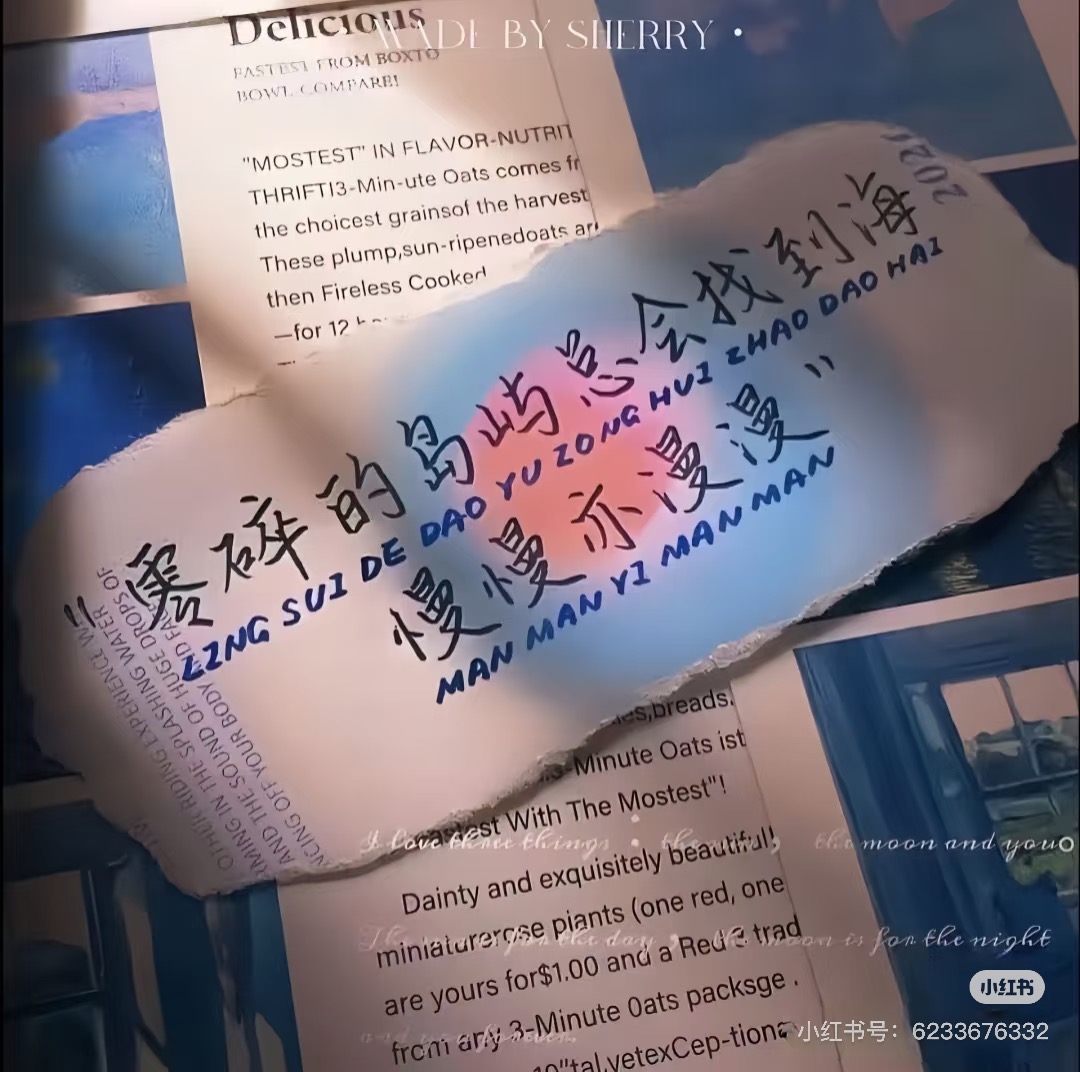 Delicious
MADE BY SHERRY •
FASTEST FROM BOXTO
BOWL-COMPARE!
"MOSTEST" IN FLAVOR-NUTRIT
THRIFTI3-Min-ute Oats comes fr
the choicest grainsof the harvest
These plump,sun-ripenedoats ar
then Fireless Cooked
—for 12 h
2021
"零碎的岛屿总会找到海
LING SUI DE DAO YU ZONG HUI ZHAO DAO HAI
慢慢亦漫漫"
MAN MAN YI MAN MAN
OTHUR RIDING EXPERIENCE W
MING IN THE SPLASHING WATER
AND THE SOUND OF HUGE DROPS OF
NCING OFF YOUR BODY ND FAC
es,breads.
3-Minute Oats ist
eastest With The Mostest"!
I love three things • the the moon and you
Dainty and exquisitely beautiful!
miniaturerose piants (one red, one
The for the day , the moon is for the night
are yours for$1.00 and a Red& trad
from any 3-Minute 0ats packsge .
and you forever
10"tal,yetexCep-tiona
小红书
小红书号：6233676332